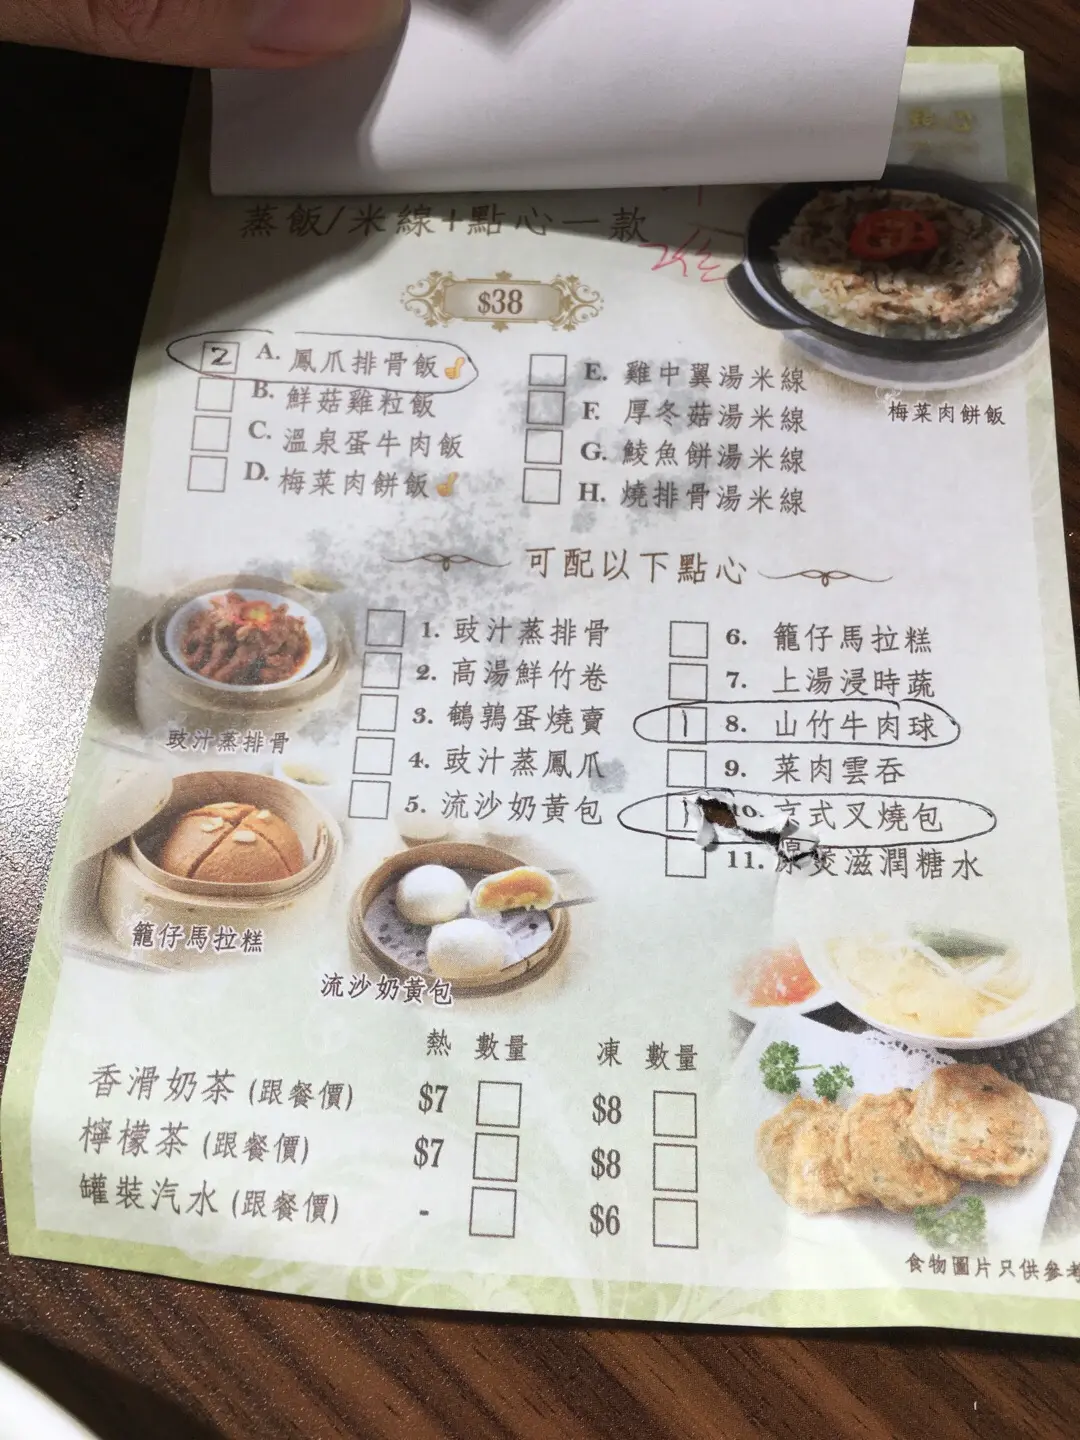 蒸飯/米線+點心一款
$38
2 A. 鳳爪排骨飯
B. 鮮菇雞粒飯
C. 溫泉蛋牛肉飯
D. 梅菜肉餅飯
E. 雞中翼湯米線
F. 厚冬菇湯米線
G. 鯪魚餅湯米線
H. 燒排骨湯米線
梅菜肉餅飯
可配以下點心
1. 豉汁蒸排骨
2. 高湯鮮竹卷
3. 鵪鶉蛋燒賣
4. 豉汁蒸鳳爪
5. 流沙奶黃包
6. 籠仔馬拉糕
7. 上湯浸時蔬
1 8. 山竹牛肉球
9. 菜肉雲吞
1 10. 京式叉燒包
11. 原煲滋潤糖水
豉汁蒸排骨
籠仔馬拉糕
流沙奶黃包
熱 數量 凍 數量
香滑奶茶 (跟餐價) $7 $8
檸檬茶 (跟餐價) $7 $8
罐裝汽水 (跟餐價) - $6
食物圖片只供參考